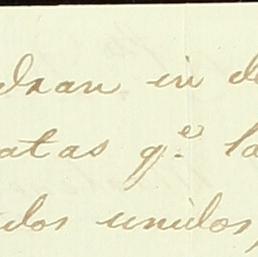 dran in de
atas q.e la
dos unidos,